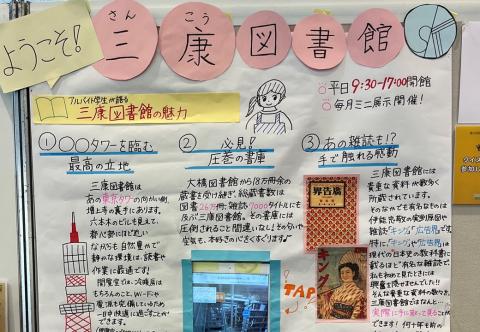 ようこそ!
さん こう
三康図書館
平日 9:30-17:00開館
毎月ミニ展示開催!
アルバイト学生が語る
三康図書館の魅力
① ○○○タワーを臨む
最高の立地
三康図書館は
あの東京タワーの向かい側、
増上寺の裏手にあります。
六本木のビルも見えて、
都心部にほど近い
ながらも自然豊かで
静かな環境は、読書や
作業に最適です!
閲覧室では、冷暖房は
もちろんのこと、Wi-Fiや
電源も完備しているため
一日中快適に過ごすことが
できます。
② 必見!
圧巻の書庫
大橋図書館から18万冊余の
蔵書を受け継ぎ、総蔵書数は
図書26万冊、雑誌7000タイトルにも
及ぶ三康図書館。その書庫には
圧倒されること間違いなし!その匂いや
空気も、本好きの心をくすぐります♪
③ あの雑誌も!?
手で触れる感動
三康図書館には
貴重な資料が数多く
所蔵されています。
そのなかでも有名なものは
伊能忠敬の実測原図や
雑誌「キング」「広告界」です。
特に「キング」や「広告界」は
現代の日本史の教科書に
載るほど有名な雑誌で、
私も初めて見たときには
興奮を隠せませんでした!!
そんな貴重な資料の数々が、
三康図書館ではなんと…
実際に手に取って見ることが
できます!何十年前の
界告廣
キング
TAP!